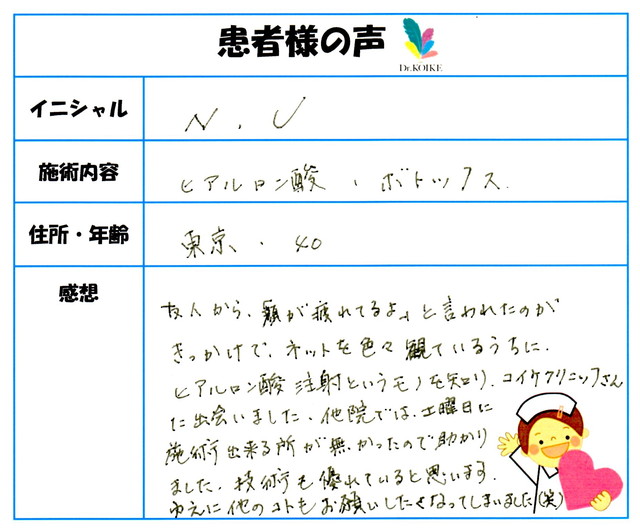 患者様の声
Dr.KOIKE
イニシャル
N.U
施術内容
ヒアルロン酸・ボトックス.
住所・年齢
東京・40
感想
友人から、顔が疲れてるよ、と言われたのが
きっかけで、ネットを色々観ているうちに、
ヒアルロン酸注射というモノを知り、コイケクリニックさん
に出会いました。他院では、土曜日に
施術出来る所が無かったので助かり
ました。技術も優れていると思います。
ゆえに他のコトもお願いしたくなってしまいました(笑)